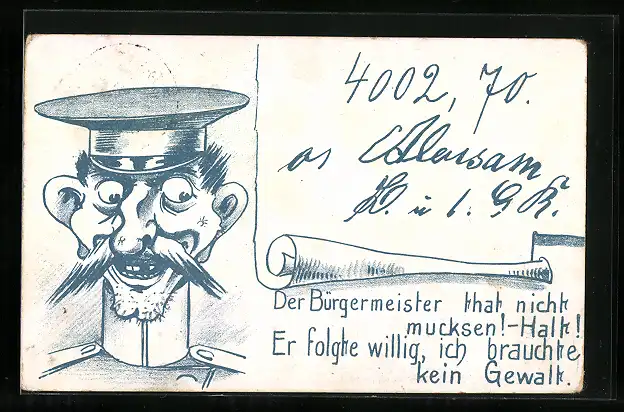 4002, 70.
H. u 1. G.R.
Der Bürgermeister that nicht
mucksen!-Halt!
Er folgte willig, ich brauchte
kein Gewalt.